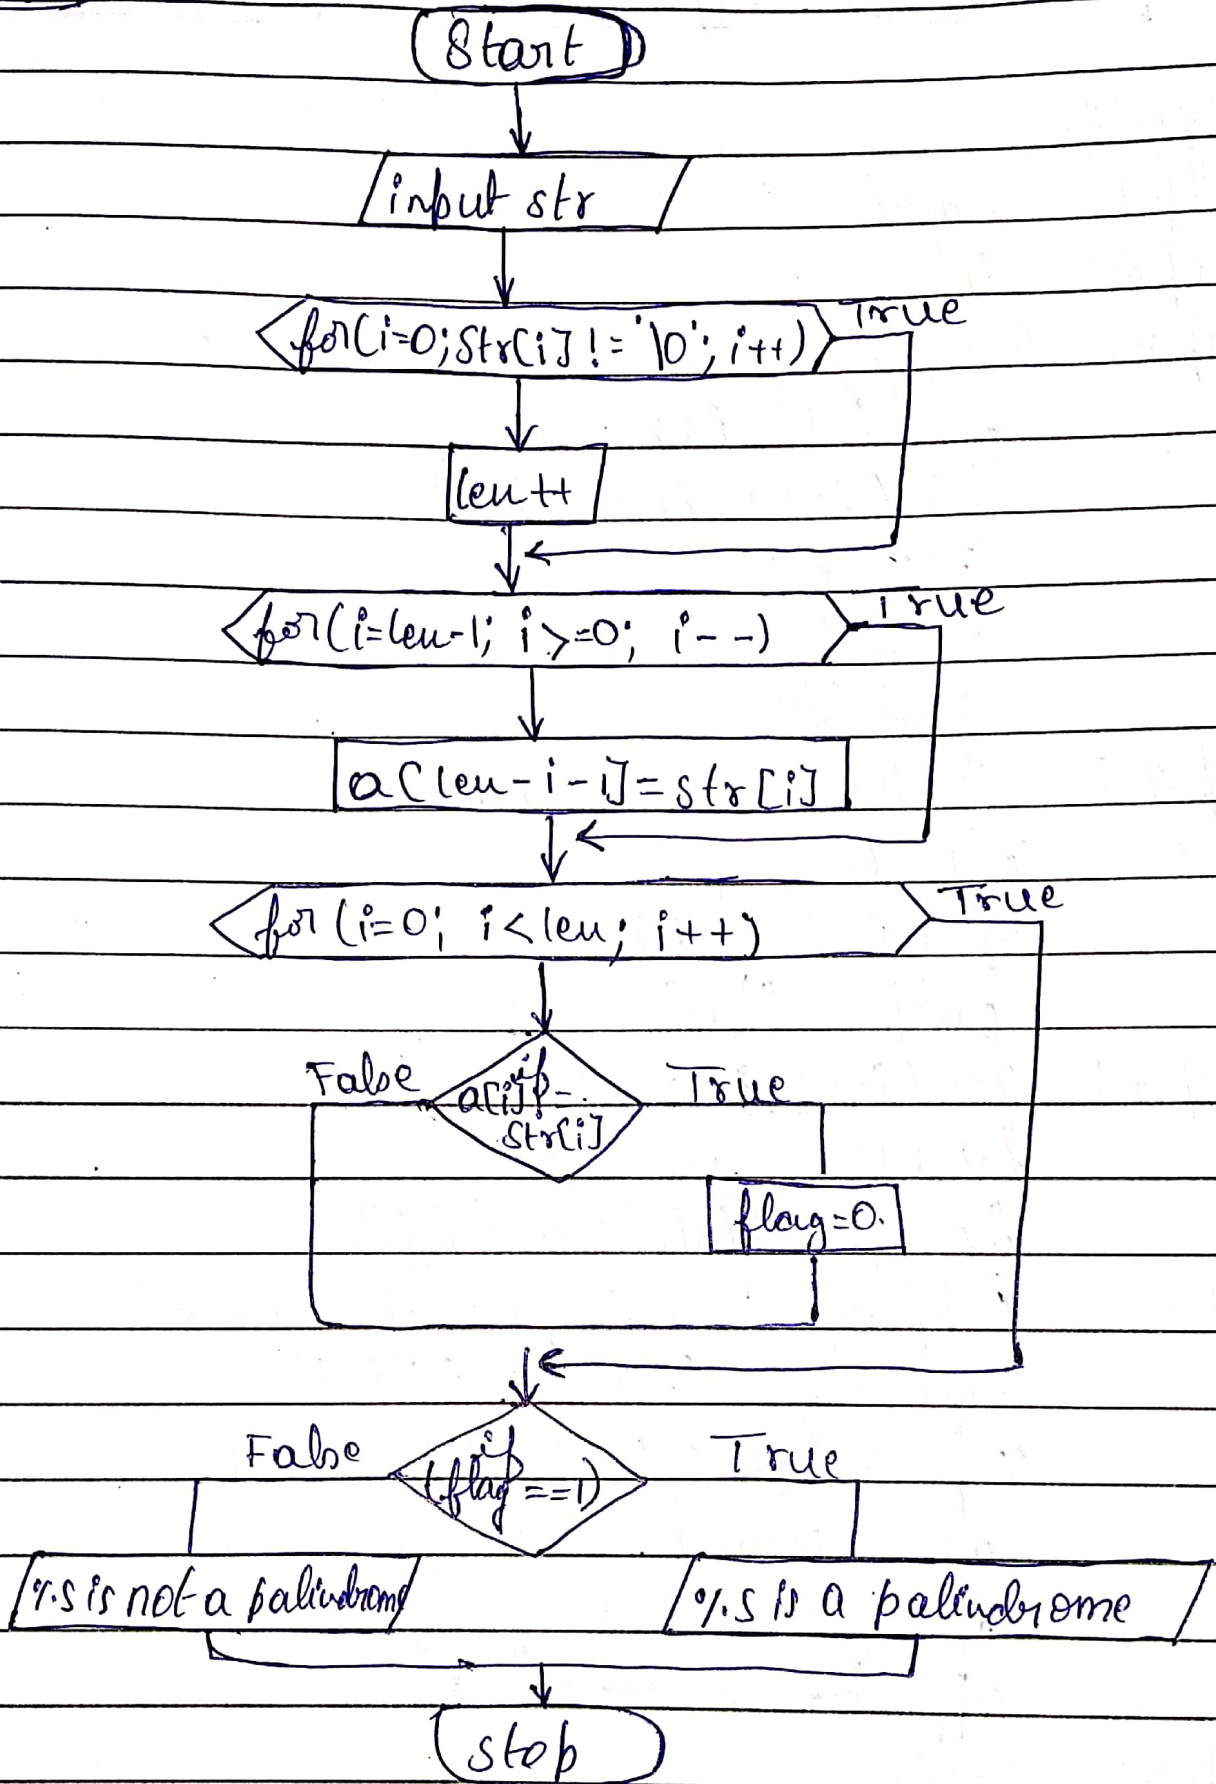 Start
input str
for(i=0;str[i]!='\0';i++) True
len++
for(i=len-1; i>=0; i--) True
a[len-i-1]=str[i]
for(i=0; i<len; i++) True
False if True
a[i]!=
str[i]
flag=0.
False if True
(flag==1)
%s is not a palindrome %s is a palindrome
stop